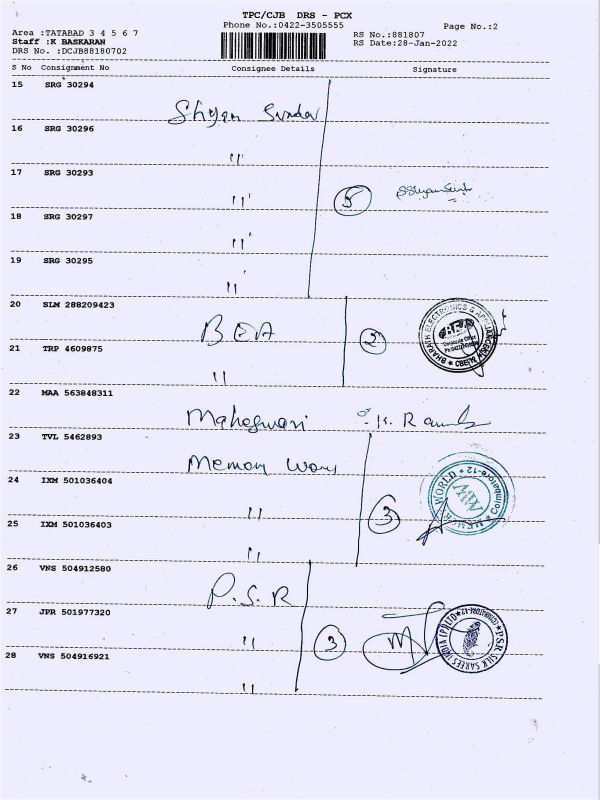 TPC/CJB DRS - PCX
Phone No.:0422-3505555
Page No.:2
Area :TATABAD 3 4 5 6 7
RS No.:881807
Staff :K BASKARAN
RS Date:28-Jan-2022
DRS No. :DCJB88180702
S No Consignment No Consignee Details Signature
15 SRG 30294
Shyam Sundar
16 SRG 30296
"
17 SRG 30293
" 5
18 SRG 30297
"
19 SRG 30295
"
20 SLM 288209423
BEA 2
BHARATH ELECTRONICS & APPLIANCES
CBE
21 TRP 4609875
"
22 MAA 563848311
Maheswari
23 TVL 5462893
Memory World
24 IXM 501036404
" 3
WORLD Coimbatore-12 MEMORY
MW
25 IXM 501036403
"
26 VNS 504912580
P.S.R
27 JPR 501977320
" 3
P.S.R SILK SAREES INDIA (P) LTD COIMBATORE-12
28 VNS 504916921
"